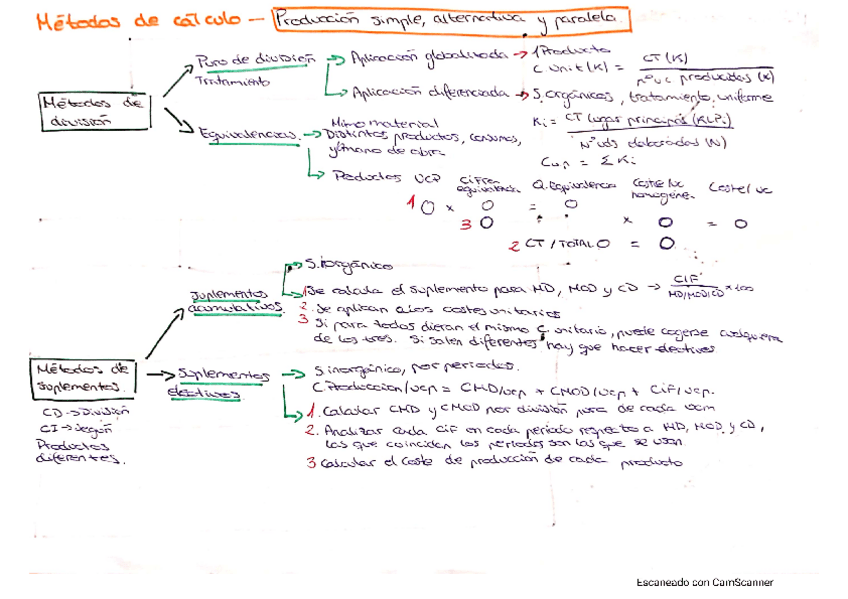 Métodos de cálculo — Producción simple, alternativa y paralela.
Métodos de división
Puro de división → Aplicación globalizada → 1 Producto
Tratamiento
C unit (K) = CT (K) / nº uc producidas (x)
Aplicación diferenciada → S. orgánicos, tratamiento, uniforme
Ki = CT lugar principal (KLP.) / Nº uds elaboradas (N)
Cup = Σ Ki
Equivalencias. → Mismo material
Distintos productos, consumos,
y/mano de obra
Productos UCP Cifra equivalencia. Q. Equivalencia Coste/uc homogéne. Coste/uc
1 O x O = O
3 O x O = O
2 CT / TOTAL O = O
Métodos de suplementos.
CD → División
CI → según
Productos
diferentes.
Suplementos acumulativos.
S. inorgánico
1 Se calcula el suplemento para MD, MOD y CD → CIF / MD/MOD/CD x 100
2. Se aplican a los costes unitarios
3 Si para todos dieran el mismo C. unitario, puede cogerse cualquiera
de los tres. Si salen diferentes hay que hacer electivos
Suplementos electivos.
S inorgánico, por periodos.
C. Producción/ucp = CMD/ucp + CMOD/ucp + CIF/ucp.
1. Calcular CMD y CMOD por división pura de cada ucm
2. Analizar cada CIF en cada periodo respecto a MD, MOD y CD,
las que coinciden los periodos son las que se usan
3 Calcular el coste de producción de cada producto
Escaneado con CamScanner